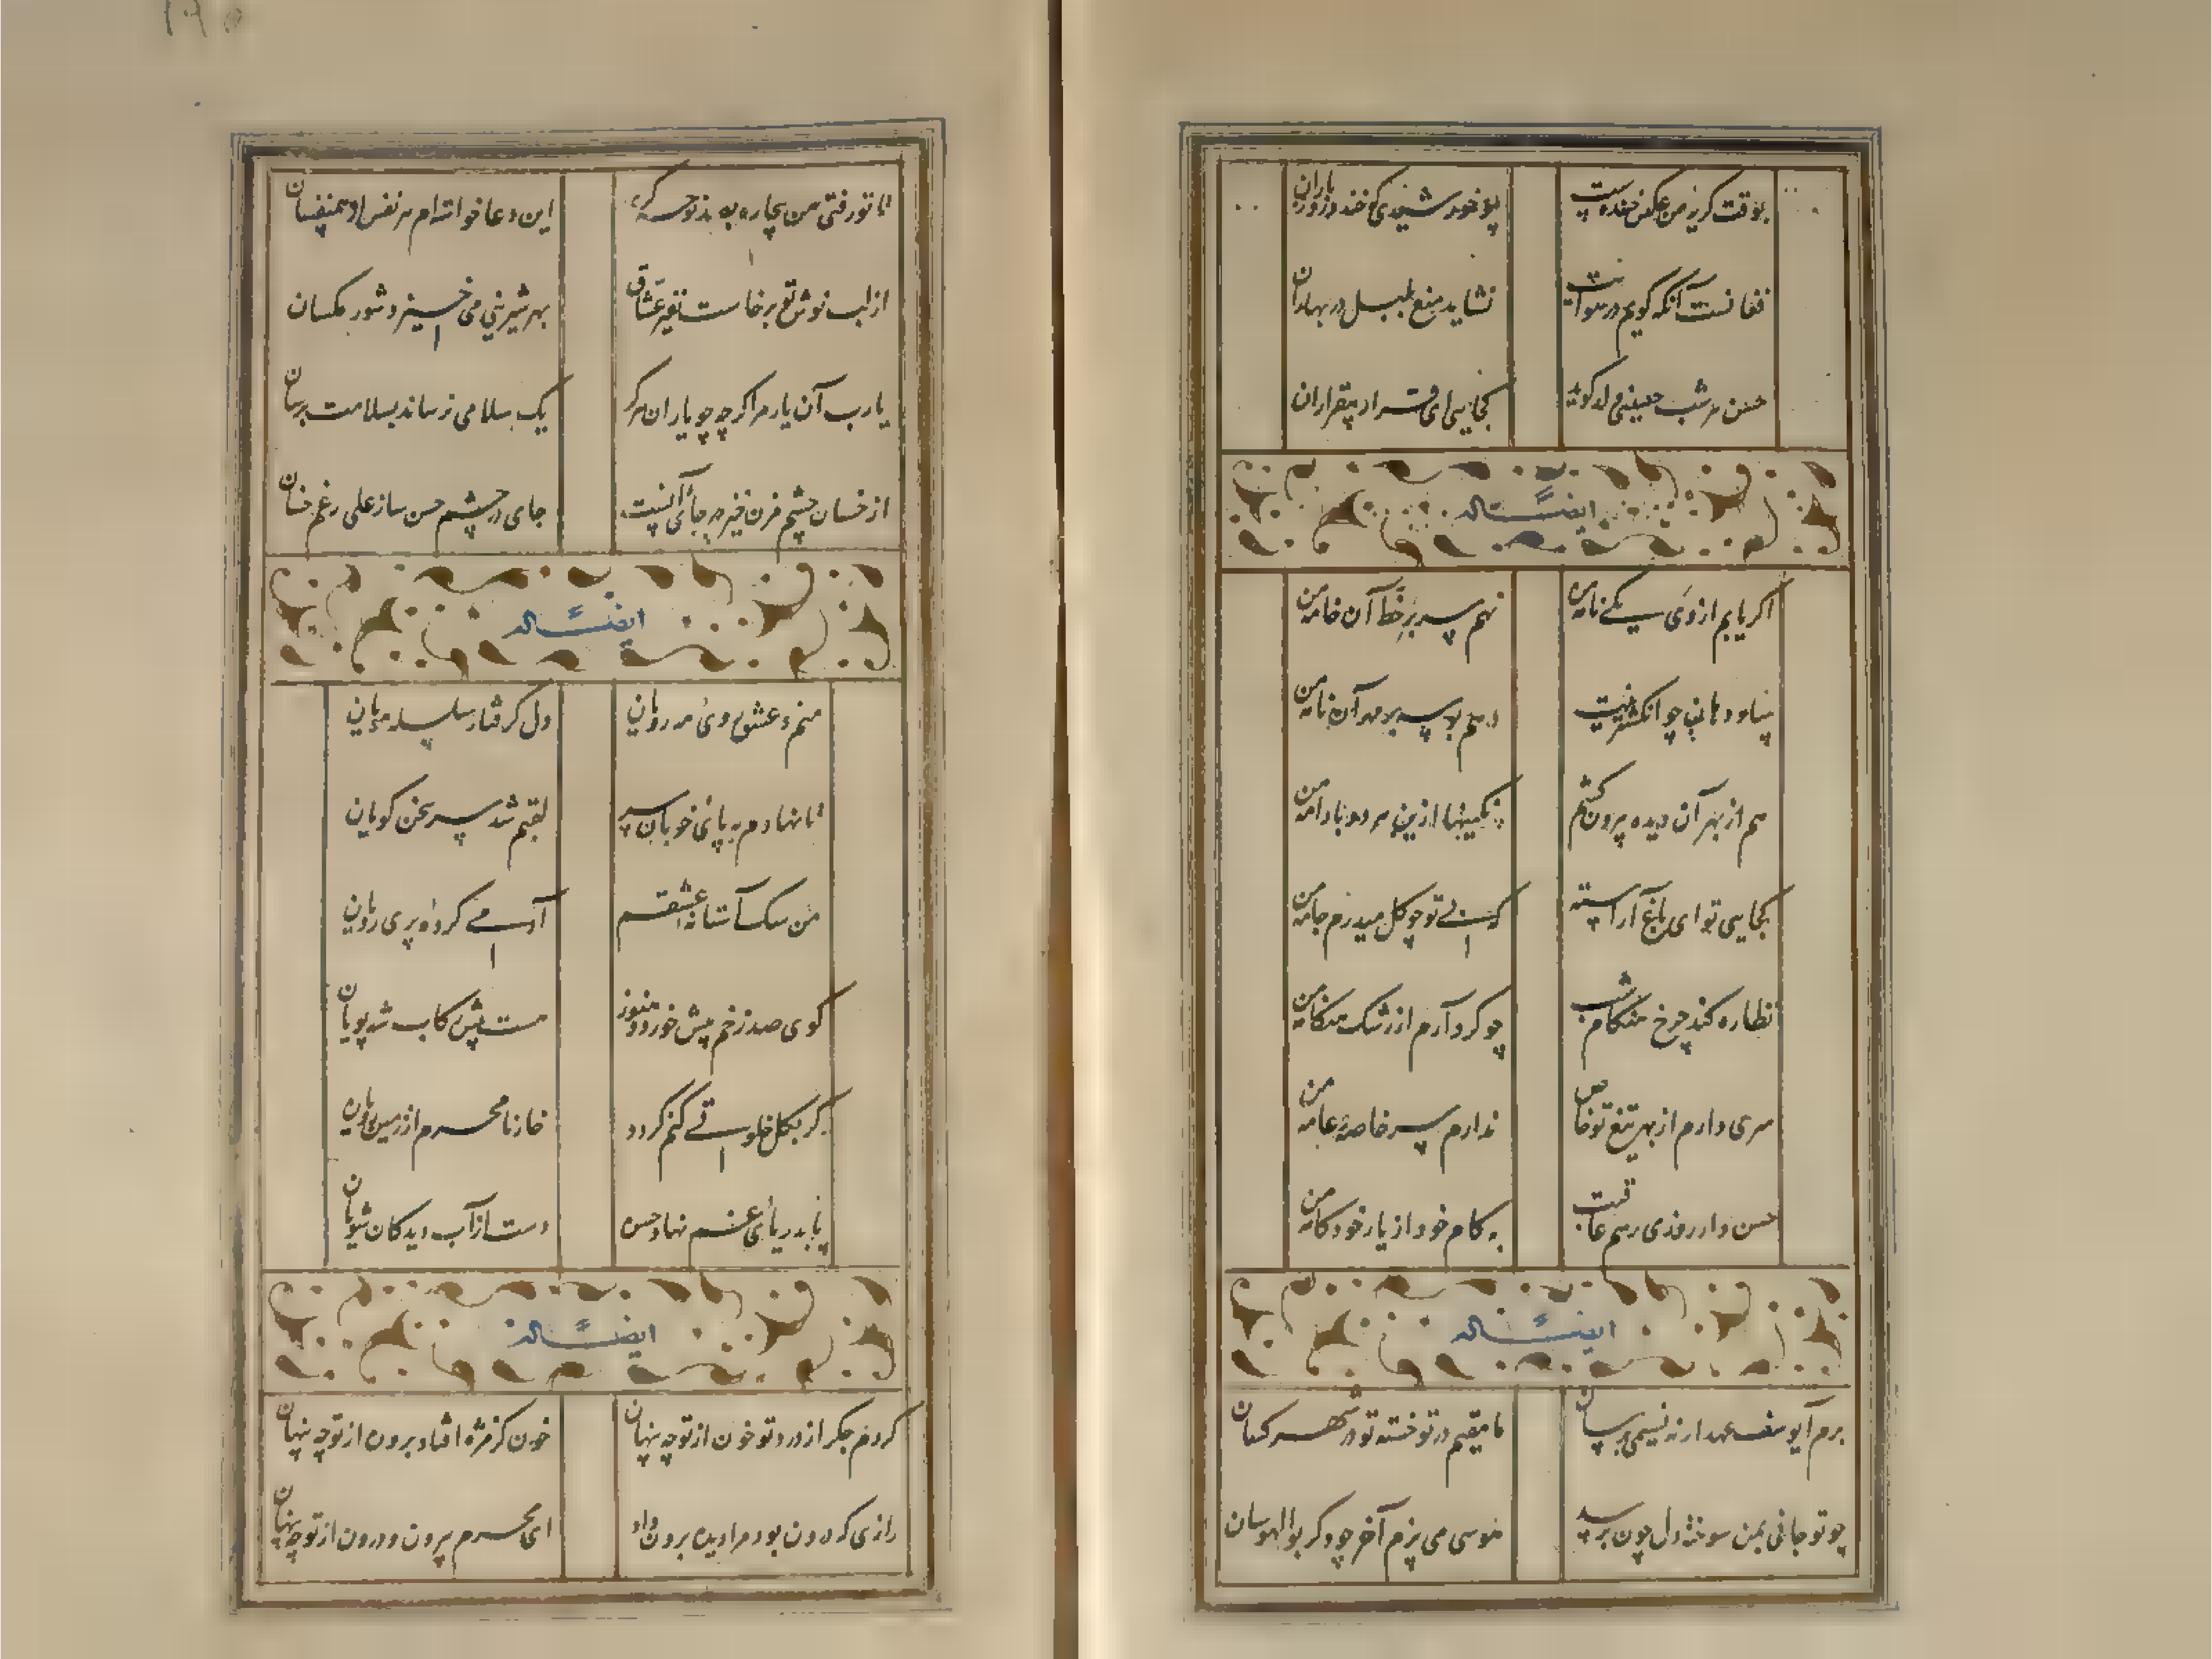 بوقت گریه من عکس خنده تست
چو خورشیدی که خندد روز باران
فغانست آنکه گویم در هوایت
نشاید منع بلبل در بهاران
حسن هر شب همی گوید
کجایی ای قرار بیقراران
ایضاً له
اگر یابم از وی یکی نامه من
نهم سر بر خط آن خامه من
دهم بوسه بر مهر آن نامه من
هم از بهر آن دیده بیرون کشم
نگینها ازین هر دو بادامه من
کجایی تو ای باغ آراسته
که بی تو چو گل میدرم جامه من
نظاره کند چرخ هنگام شب
چو گرد آرم از اشک هنگامه من
سری دارم از بهر تیغ تو خاص
ندارم سر خاصه و عامه من
حسن دار روزی رسم عاقبت
به کام خود از یار خودکامه من
ایضاً له
ما مقیم در تو خسته تو در شهر کسان
چو تو جانی بمن سوخته دل چون برسد
هوسی می پزم آخر چو دگر بوالهوسان
تا تو رفتی من بیچاره به
این دعا خوانده ام هر نفس از همنفسان
از لب نوش تو برخاست نفیر عشاق
بهر شیرینی می خیزد شور مگسان
یارب آن یار مرا گرچه چو یاران دگر
یک سلامی نرساند بسلامت برسان
از خسان چشم مزن خیز در جائی نیست
جای در چشم حسن ساز علی رغم خسان
ایضاً له
منم و عشق روی مه رویان
دل گرفتار سلسله مویان
تا نهادم به پای خوبان سر
لقبم شد سر سخن گویان
من سگ آستانه عشقم
آدمی کرده پری رویان
گوی صد زخم بیش خورد و هنوز
هست پیش رکاب شه پویان
گر بگل خلوتی کنم گردد
خار نامحرم از زمین رویان
پا بدریای غم نهاد حسن
دست از آب دیدگان شویان
ایضاً له
کردم جگر از درد تو خون از تو چه پنهان
خون کز مژه افتاد برون از تو چه پنهان
رازی که درون بود مرا دیده برون داد
ای محرم بیرون و درون از تو چه پنهان